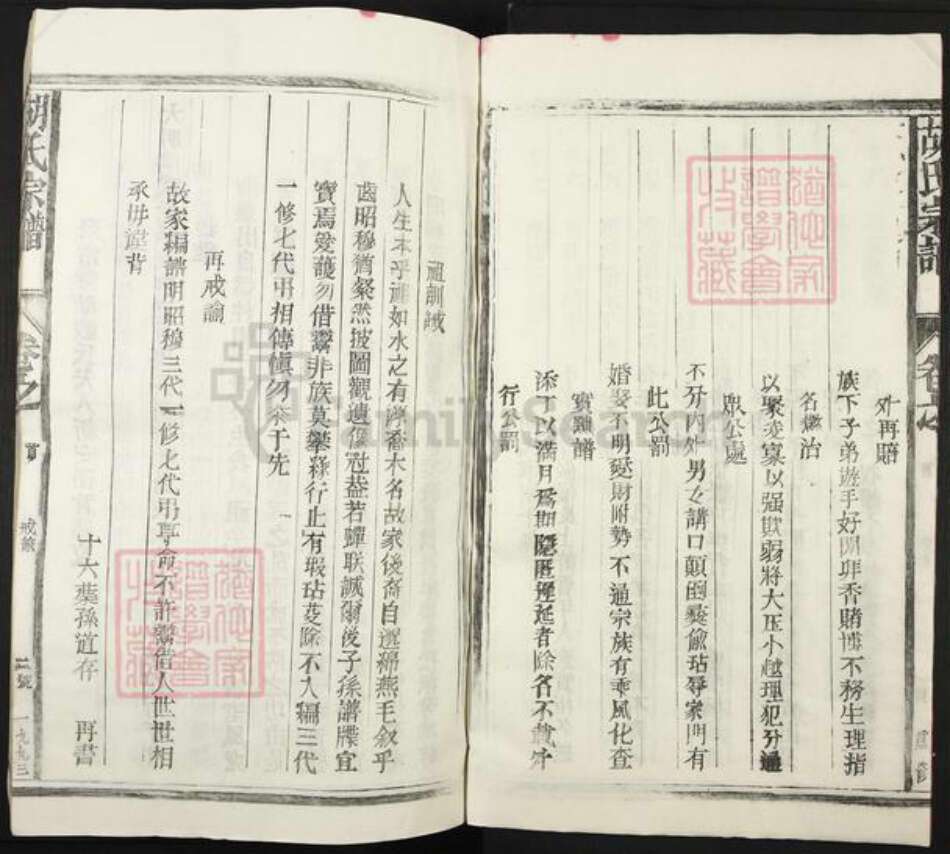 胡氏宗譜
外再賠
族下子弟遊手好閒 香賭博不務生理指
名懲治
以聚 寡以强欺弱將大压小越理犯分通
眾公處
不分内外男女講口顛倒 倫玷辱家門有
此公罰
婚娶不明 財附勢不通宗族有乖風化查
實 譜
添丁以滿月爲期隱匿遲延者除名不載外
行公罰
祖訓誡
人生本乎 如水之有源喬木名故家後裔自還綿燕毛叙乎
齒昭穆猶粲然披圖觀遺像冠葢若 联誠爾後子孫譜牒宜
寶焉愛護勿借鬻非族莫攀 行止有瑕玷芟除不入編三代
一修七代弔相傳慎勿 于先
再戒諭
故家編譜明昭穆三代一修七代弔 命不許鬻借人世世相
承毋 背
十六 孫道存 再書
胡氏宗譜
卷之 首
戒諭
三號 一九九三